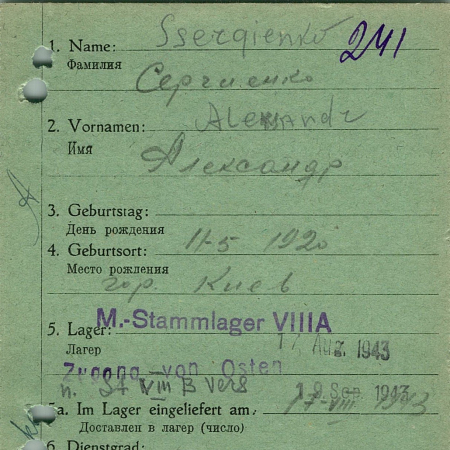 1. Name: Ssergienko 241
Фамилия
Сергиенко
2. Vornamen: Alexandr
Имя
Александр
3. Geburtstag:
День рождения
11-5 1920
4. Geburtsort:
Место рождения
гор. Киев
M.-Stammlager VIIIA
5. Lager:
Лагер
Aug. 1943
Zugang von Osten
n. St VIII B vers 19 Sep. 1943
5a. Im Lager eingeliefert am: 17-VIII 1943
Доставлен в лагер (число)
6. Dienstgrad: